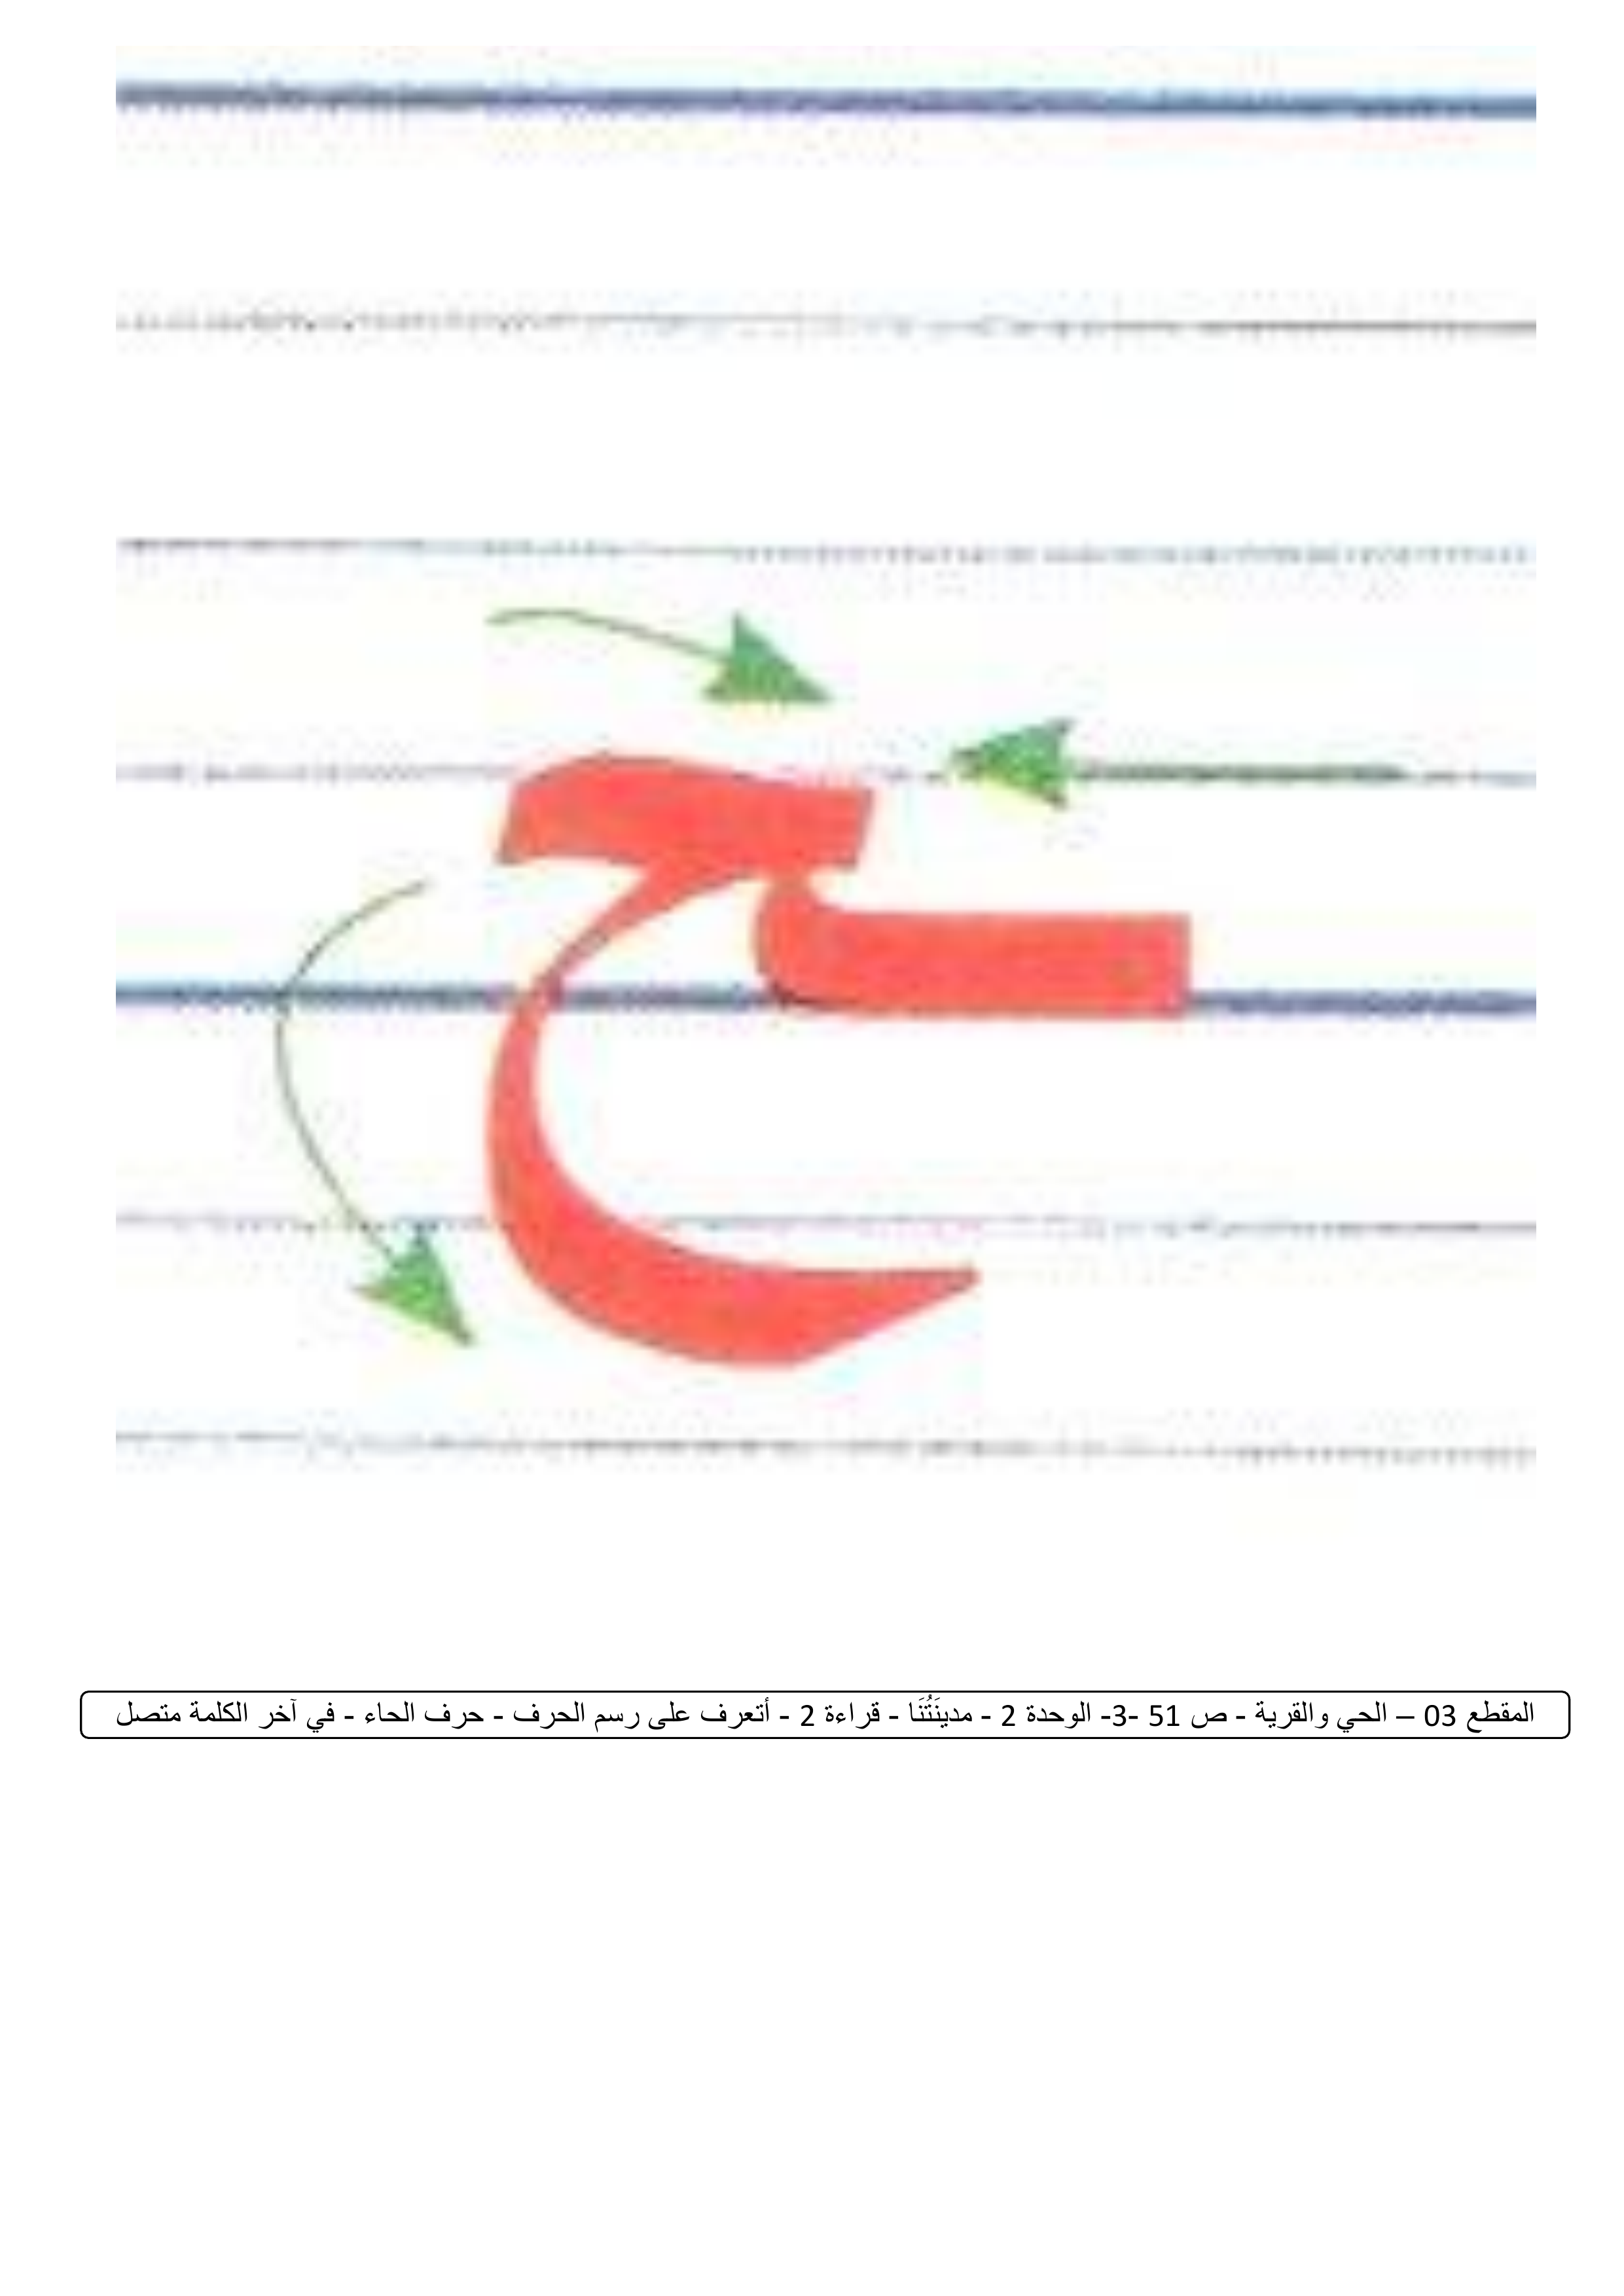 ـح
المقطع 03 – الحي والقرية - ص 51 -3- الوحدة 2 - مدينَتُنَا - قراءة 2 - أتعرف على رسم الحرف - حرف الحاء - في آخر الكلمة متصل